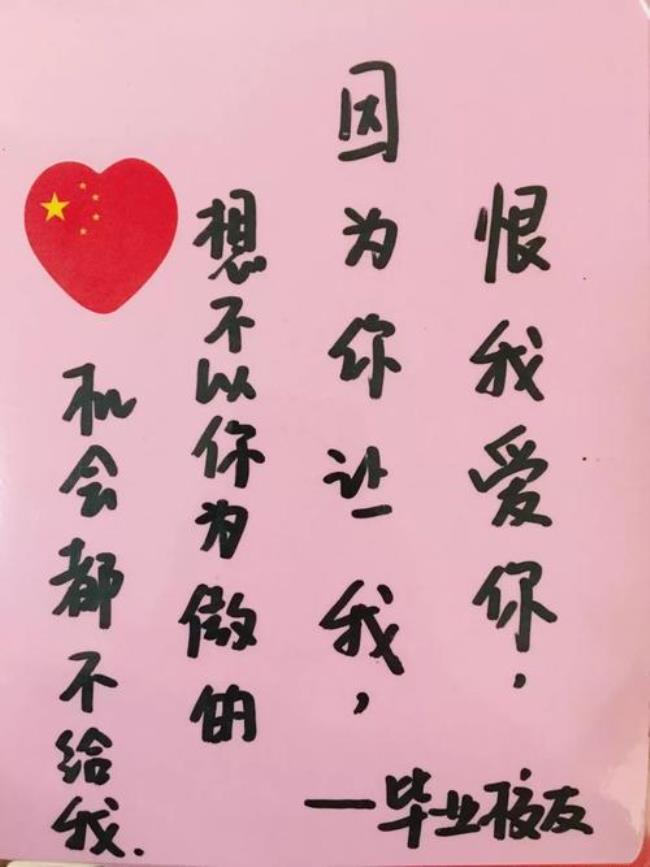 恨我爱你，
因为你让我，
想不以你为做的
机会都不给我.
—毕业校友